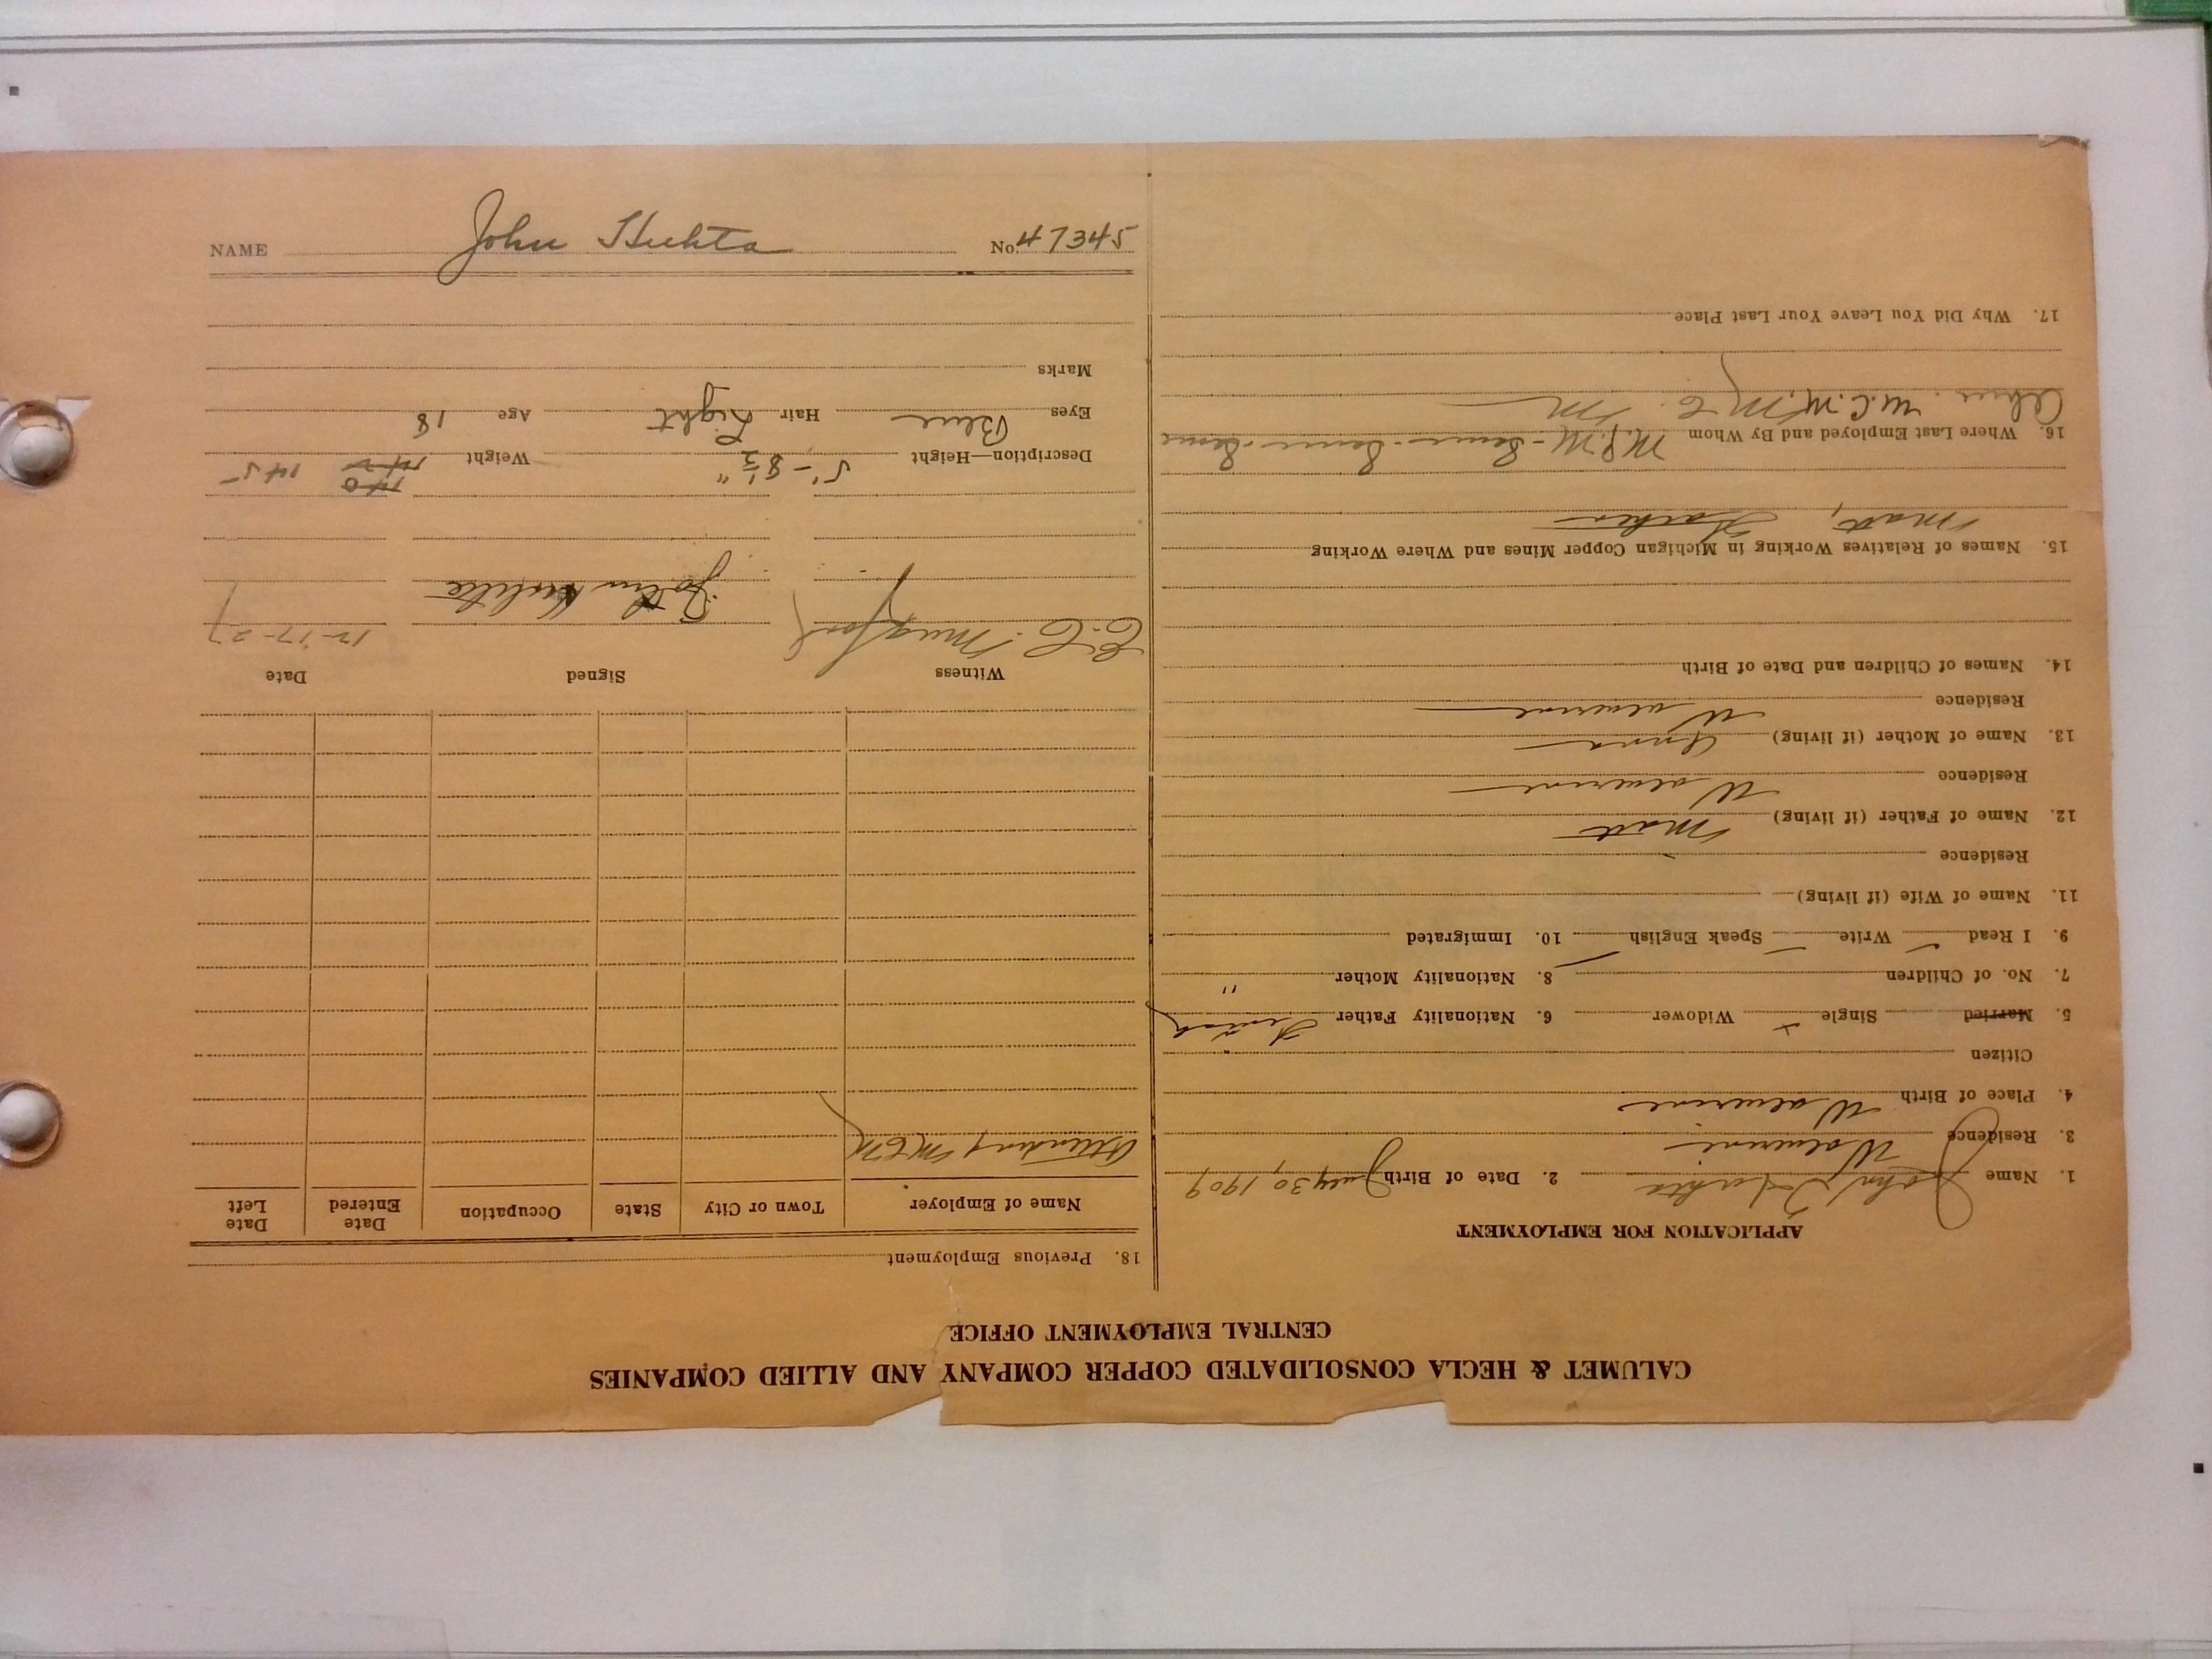 CALUMET & HECLA CONSOLIDATED COPPER COMPANY AND ALLIED COMPANIES
CENTRAL EMPLOYMENT OFFICE
APPLICATION FOR EMPLOYMENT
1. Name John Huhta 2. Date of Birth July 30, 1909
3. Residence Wolverine
4. Place of Birth Wolverine
Citizen
5. Married Single x Widower 6. Nationality Father Finish
7. No. of Children 8. Nationality Mother "
9. I Read ✓ Write Speak English 10. Immigrated
11. Name of Wife (if living)
Residence
12. Name of Father (if living) Matt
Residence Wolverine
13. Name of Mother (if living) Anna
Residence Wolverine
14. Names of Children and Date of Birth
15. Names of Relatives Working in Michigan Copper Mines and Where Working
Matt, Father
16. Where Last Employed and By Whom
17. Why Did You Leave Your Last Place
18. Previous Employment
Name of Employer Town or City State Occupation Date Entered Date Left
Attending MCM
Witness Signed Date
C. C. Mugford John Huhta 12-17-27
Description—Height 5'-8½" Weight 140 145
Eyes Blue Hair Light Age 18
Marks
NAME John Huhta No. 47345